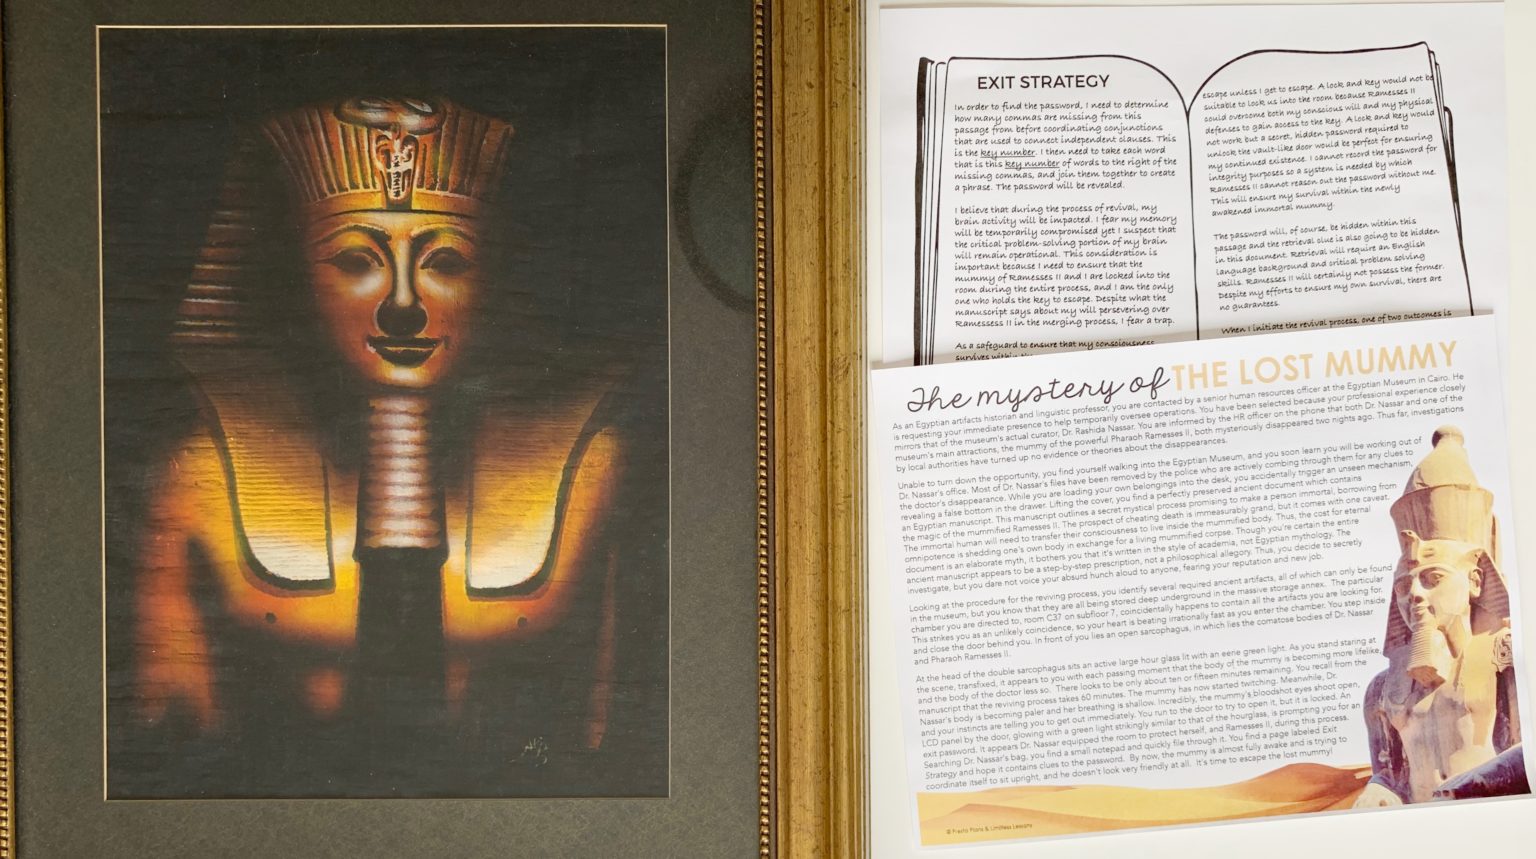 EXIT STRATEGY
In order to find the password, I need to determine
how many commas are missing from this
passage from before coordinating conjunctions
that are used to connect independent clauses. This
is the key number. I then need to take each word
that is this key number of words to the right of the
missing commas, and join them together to create
a phrase. The password will be revealed.
I believe that during the process of revival, my
brain activity will be impacted. I fear my memory
will be temporarily compromised yet I suspect that
the critical problem-solving portion of my brain
will remain operational. This consideration is
important because I need to ensure that the
mummy of Ramesses II and I are locked into the
room during the entire process, and I am the only
one who holds the key to escape. Despite what the
manuscript says about my will persevering over
Ramessess II in the merging process, I fear a trap.
As a safeguard to ensure that my consciousness
survives within the
escape unless I get to escape. A lock and key would not be
suitable to lock us into the room because Ramesses II
could overcome both my conscious will and my physical
defenses to gain access to the key. A lock and key would
not work but a secret, hidden password required to
unlock the vault-like door would be perfect for ensuring
my continued existence. I cannot record the password for
integrity purposes so a system is needed by which
Ramesses II cannot reason out the password without me.
This will ensure my survival within the newly
awakened immortal mummy.
The password will, of course, be hidden within this
passage and the retrieval clue is also going to be hidden
in this document. Retrieval will require an English
language background and critical problem solving
skills. Ramesses II will certainly not possess the former.
Despite my efforts to ensure my own survival, there are
no guarantees.
When I initiate the revival process, one of two outcomes is
The mystery of THE LOST MUMMY
As an Egyptian artifacts historian and linguistic professor, you are contacted by a senior human resources officer at the Egyptian Museum in Cairo. He
is requesting your immediate presence to help temporarily oversee operations. You have been selected because your professional experience closely
mirrors that of the museum's actual curator, Dr. Rashida Nassar. You are informed by the HR officer on the phone that both Dr. Nassar and one of the
museum's main attractions, the mummy of the powerful Pharaoh Ramesses II, both mysteriously disappeared two nights ago. Thus far, investigations
by local authorities have turned up no evidence or theories about the disappearances.
Unable to turn down the opportunity, you find yourself walking into the Egyptian Museum, and you soon learn you will be working out of
Dr. Nassar's office. Most of Dr. Nassar's files have been removed by the police who are actively combing through them for any clues to
the doctor's disappearance. While you are loading your own belongings into the desk, you accidentally trigger an unseen mechanism,
revealing a false bottom in the drawer. Lifting the cover, you find a perfectly preserved ancient document which contains
an Egyptian manuscript. This manuscript outlines a secret mystical process promising to make a person immortal, borrowing from
the magic of the mummified Ramesses II. The prospect of cheating death is immeasurably grand, but it comes with one caveat.
The immortal human will need to transfer their consciousness to live inside the mummified body. Thus, the cost for eternal
omnipotence is shedding one's own body in exchange for a living mummified corpse. Though you're certain the entire
document is an elaborate myth, it bothers you that it's written in the style of academia, not Egyptian mythology. The
ancient manuscript appears to be a step-by-step prescription, not a philosophical allegory. Thus, you decide to secretly
investigate, but you dare not voice your absurd hunch aloud to anyone, fearing your reputation and new job.
Looking at the procedure for the reviving process, you identify several required ancient artifacts, all of which can only be found
in the museum, but you know that they are all being stored deep underground in the massive storage annex. The particular
chamber you are directed to, room C37 on subfloor 7, coincidentally happens to contain all the artifacts you are looking for.
This strikes you as an unlikely coincidence, so your heart is beating irrationally fast as you enter the chamber. You step inside
and close the door behind you. In front of you lies an open sarcophagus, in which lies the comatose bodies of Dr. Nassar
and Pharaoh Ramesses II.
At the head of the double sarcophagus sits an active large hour glass lit with an eerie green light. As you stand staring at
the scene, transfixed, it appears to you with each passing moment that the body of the mummy is becoming more lifelike,
and the body of the doctor less so. There looks to be only about ten or fifteen minutes remaining. You recall from the
manuscript that the reviving process takes 60 minutes. The mummy has now started twitching. Meanwhile, Dr.
Nassar's body is becoming paler and her breathing is shallow. Incredibly, the mummy's bloodshot eyes shoot open,
and your instincts are telling you to get out immediately. You run to the door to try to open it, but it is locked. An
LCD panel by the door, glowing with a green light strikingly similar to that of the hourglass, is prompting you for an
exit password. It appears Dr. Nassar equipped the room to protect herself, and Ramesses II, during this process.
Searching Dr. Nassar's bag, you find a small notepad and quickly file through it. You find a page labeled Exit
Strategy and hope it contains clues to the password. By now, the mummy is almost fully awake and is trying to
coordinate itself to sit upright, and he doesn't look very friendly at all. It's time to escape the lost mummy!
© Presto Plans & Limitless Lessons